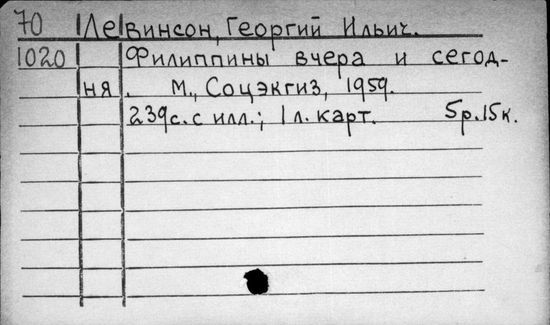 70 Левинсон, Георгий Ильич.
1020 Филиппины вчера и сегод-
ня. М., Соцэкгиз, 1959.
239с. с илл.; 1 л. карт. 5р.15к.